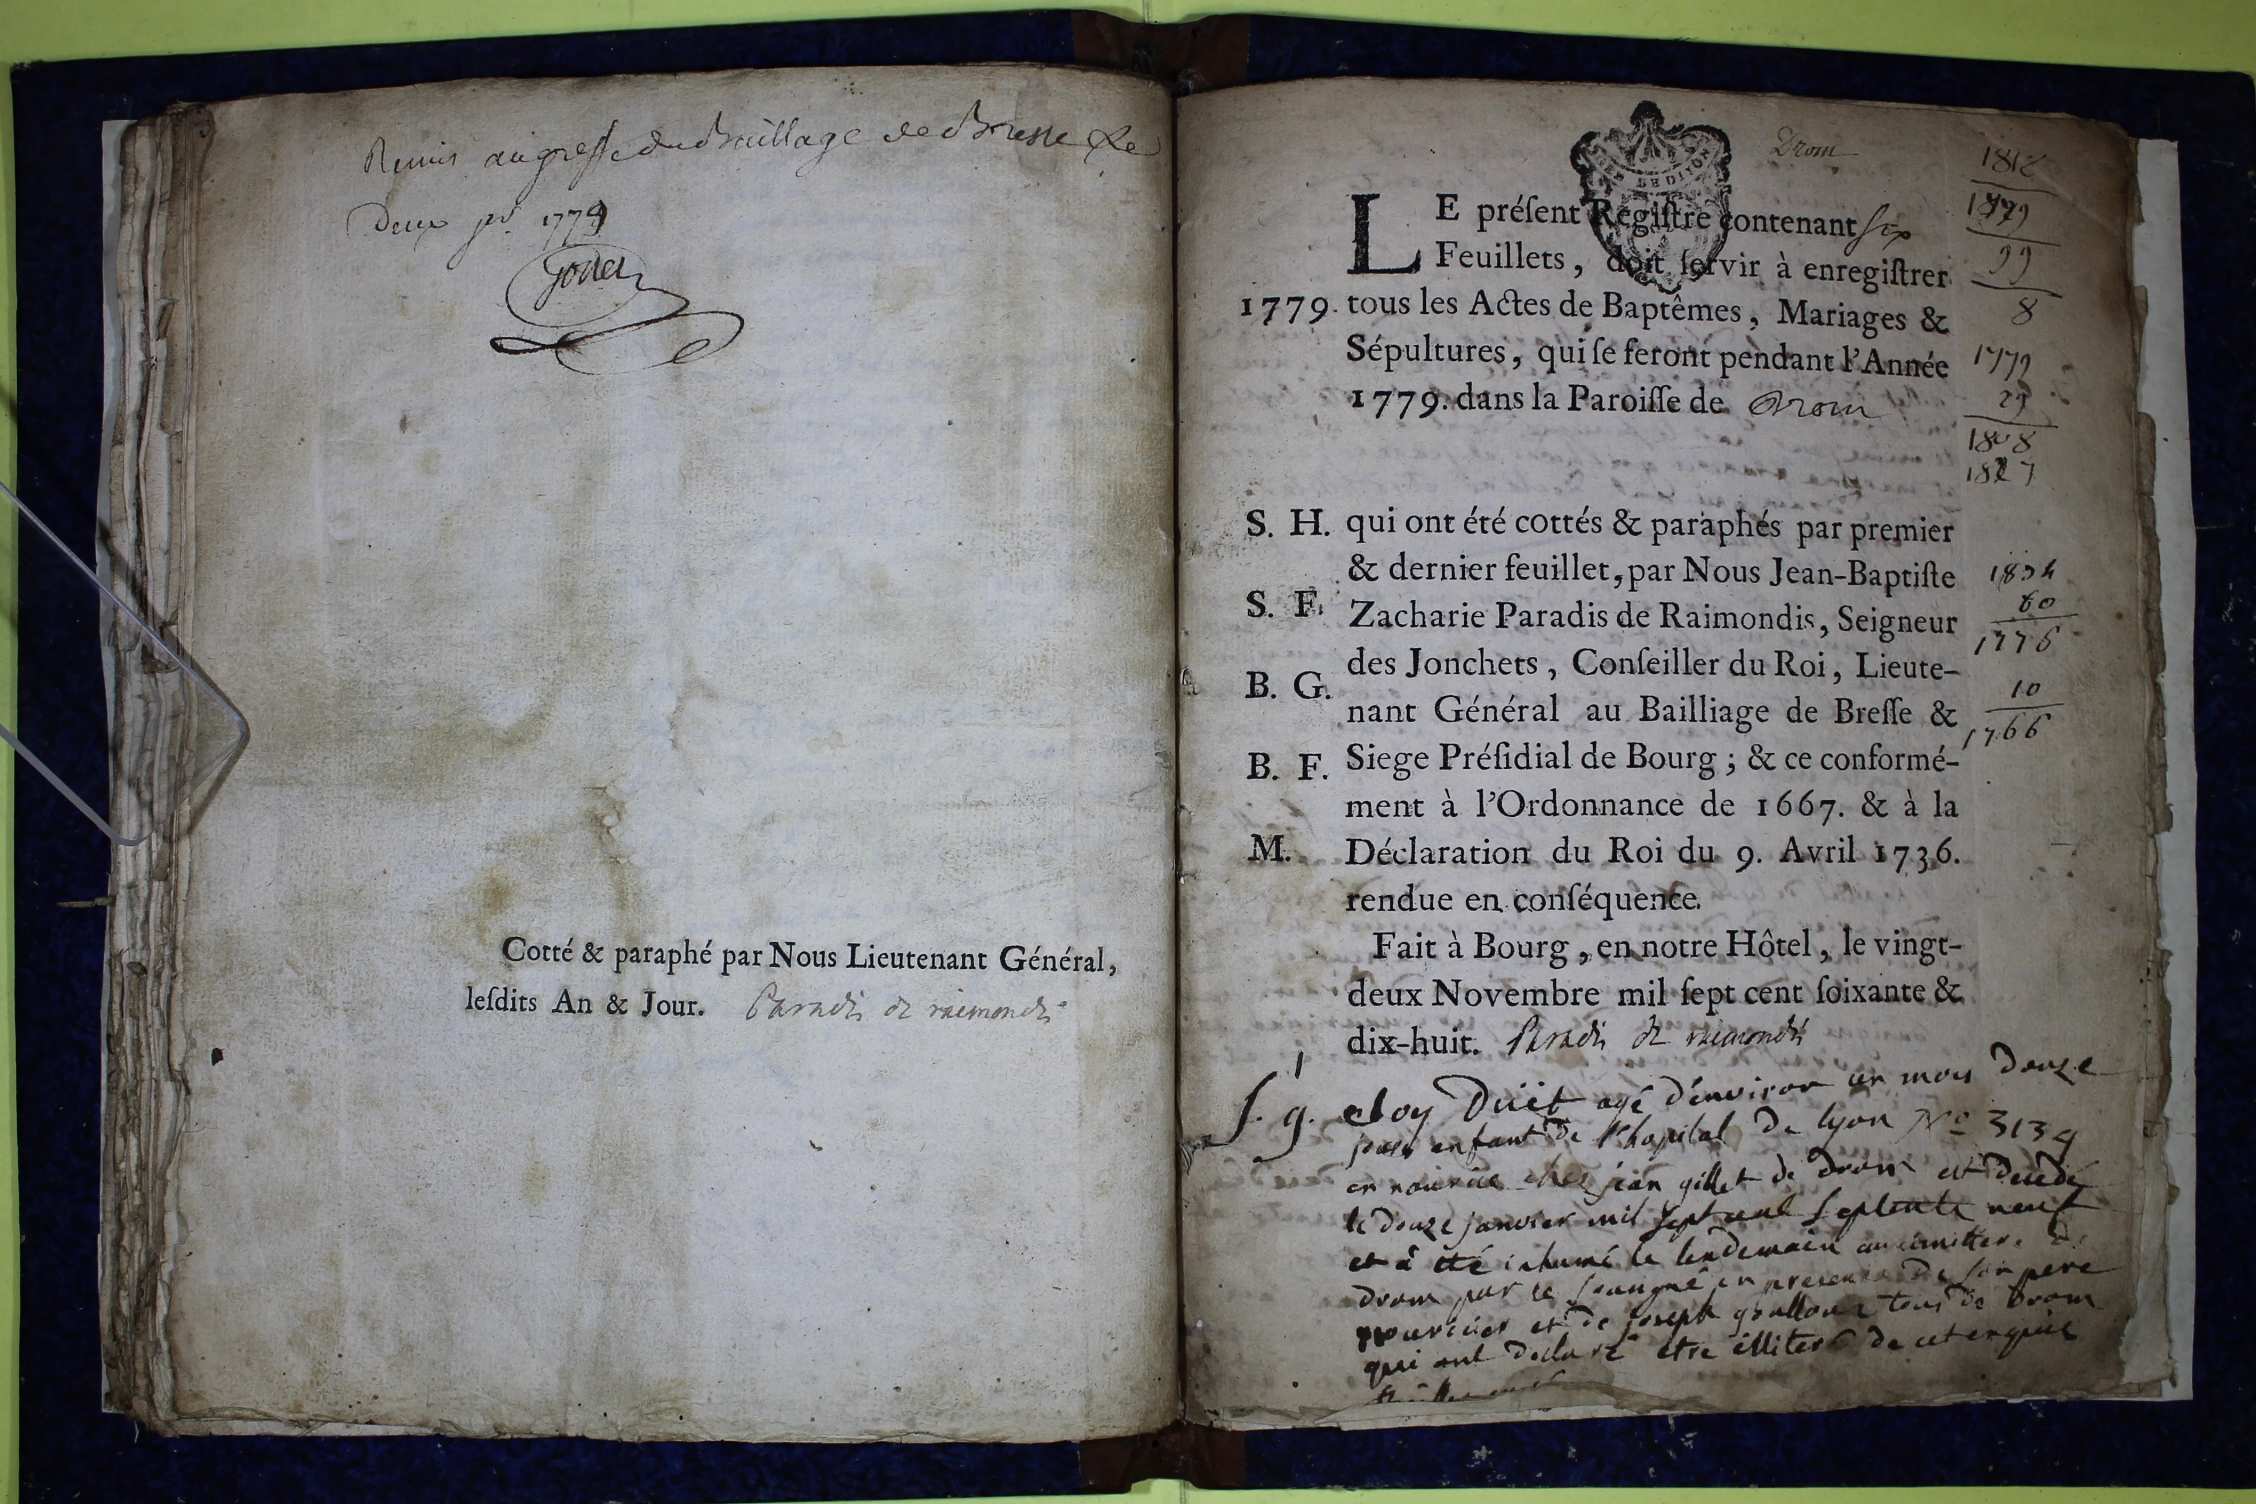 Remis au greffe du Bailliage de Bresse le
Deux jer 1779
Cotté & paraphé par Nous Lieutenant Général,
leſdits An & Jour. Paradis de raimondis
Drom
LE préſent Regiſtre contenant ſix
Feuillets, doit ſervir à enregiſtrer
1779. tous les Actes de Baptêmes, Mariages &
Sépultures, qui ſe feront pendant l'Année
1779. dans la Paroiſſe de Drom
S. H. qui ont été cottés & paraphés par premier
& dernier feuillet, par Nous Jean-Baptiſte
S. F. Zacharie Paradis de Raimondis, Seigneur
des Jonchets, Conſeiller du Roi, Lieute-
B. G. nant Général au Bailliage de Breſſe &
B. F. Siege Préſidial de Bourg ; & ce conformé-
ment à l'Ordonnance de 1667. & à la
M. Déclaration du Roi du 9. Avril 1736.
rendue en conſéquence.
Fait à Bourg, en notre Hôtel, le vingt-
deux Novembre mil ſept cent ſoixante &
dix-huit. Paradis de raimondis
1812
1779
99
8
1779
29
1808
1834
60
1776
10
1766
1
S. g. eloy Duit agé d'environ un mois douze
jours enfant de l'hopital de lyon No 3139
en nourice chez jean gillet de drom est decedé
le douze janvier mil sept cent septente neuf
et a été inhumé le lendemain au cimittere de
drom par le sousigné en presence de son pere
nouricier et de joseph tous de drom
qui ont declaré etre illiteré de cet enquis